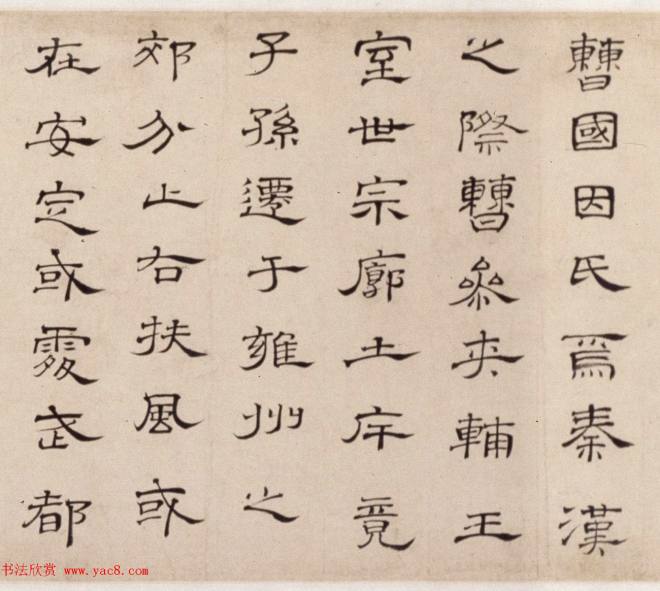 曹國因氏焉秦漢
之際曹參夾輔王
室世宗廓土斥竟
子孫遷于雍州之
郊分止右扶風或
在安定或處武都
书法欣赏 www.yac8.com